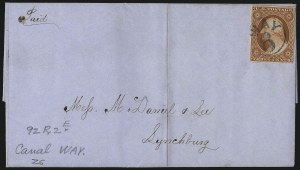 Paid
WAY
6
Mess. McDaniel & Lee
Lynchburg
92 R 2 E
Canal WAY.